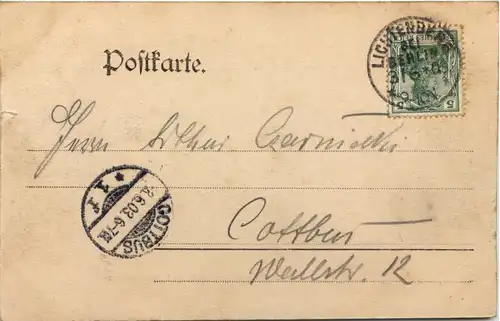 Postkarte.
LICHTENBERG
BERLIN
5
Herrn Lothar Czarnietzki
COTTBUS
8.6.03.6-7N.
* 1 f
Cottbus
Wallstr. 12